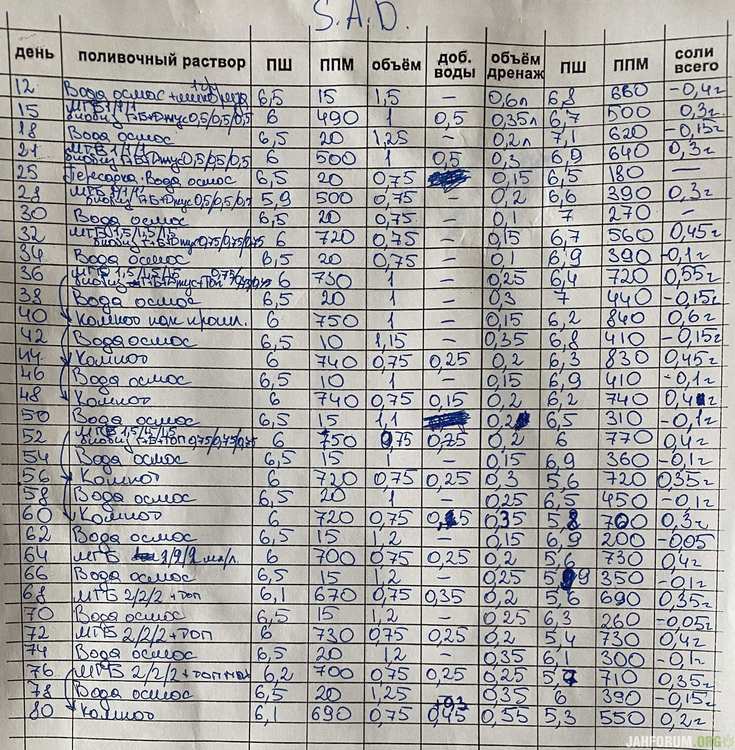 S.A.D.
день поливочный раствор ПШ ППМ объём доб. воды объём дренаж ПШ ППМ соли всего
12 Вода осмос + 6,5 15 1,5 — 0,6л 6,8 660 -0,4г
15 МГБ 1/1/1 биобиз Г+Б+Джус 0,5/0,5/0,5 6 490 1 0,5 0,35л 6,7 500 0,3г
18 Вода осмос 6,5 20 1,25 — 0,2л 7,1 620 -0,15г
21 МГБ 1/1/1 биобиз Г+Б+Джус 0,5/0,5/0,5 6 500 1 0,5 0,3 6,9 640 0,3г
25 Пересадка. Вода осмос 6,5 20 0,75 0,15 6,5 180 —
28 МГБ 1/1/1 биобиз Г+Б+Джус 0,5/0,5/0,5 5,9 500 0,75 — 0,2 6,6 390 0,3г
30 Вода осмос 6,5 20 0,75 — 0,1 7 270 —
32 МГБ 1,5/1,5/1,5 биобиз Г+Б+Джус 0,75/0,75/0,75 6 720 0,75 — 0,15 6,7 560 0,45г
34 Вода осмос 6,5 20 0,75 — 0,1 6,9 390 -0,1г
36 МГБ 1,5/1,5/1,5 биобиз 6 730 1 — 0,25 6,4 720 0,55г
38 Вода осмос 6,5 20 1 — 0,3 7 440 -0,15г
40 Компот как прошл. 6 750 1 — 0,15 6,2 840 0,6г
42 Вода осмос 6,5 10 1,15 — 0,35 6,8 410 -0,15г
44 Компот 6 740 0,75 0,25 0,2 6,3 830 0,45г
46 Вода осмос 6,5 10 1 — 0,15 6,9 410 -0,1г
48 Компот 6 740 0,75 0,15 0,2 6,2 740 0,4г
50 Вода осмос 6,5 15 1,1 0,2 6,5 310 -0,1г
52 МГБ 1,5/1,5/1,5 биобиз Г+Б+ТОП 0,75/0,75/0,75 6 750 0,75 0,75 0,2 6 770 0,4г
54 Вода осмос 6,5 15 1 — 0,15 6,9 360 -0,1г
56 Компот 6 720 0,75 0,25 0,3 5,6 720 0,35г
58 Вода осмос 6,5 20 1 — 0,25 6,5 450 -0,1г
60 Компот 6 720 0,75 0,35 5,8 700 0,3г
62 Вода осмос 6,5 15 1,2 — 0,15 6,9 200 -0,05
64 МГБ 2/2/2 мл/л. 6 700 0,75 0,25 0,2 5,6 730 0,4г
66 Вода осмос 6,5 15 1,2 — 0,25 5,9 350 -0,1г
68 МГБ 2/2/2 +ТОП 6,1 670 0,75 0,35 0,2 5,6 690 0,35г
70 Вода осмос 6,5 15 1,2 — 0,25 6,3 260 -0,05г
72 МГБ 2/2/2 +ТОП 6 730 0,75 0,25 0,2 5,4 730 0,4г
74 Вода осмос 6,5 20 1,2 — 0,35 6,1 300 -0,1г
76 МГБ 2/2/2 +ТОП 6,2 700 0,75 0,25 0,25 5,7 710 0,35г
78 Вода осмос 6,5 20 1,25 — 0,35 6 390 -0,15г
80 Компот 6,1 690 0,75 0,45 +0,3 0,55 5,3 550 0,2г
JAHFORUM.ORG